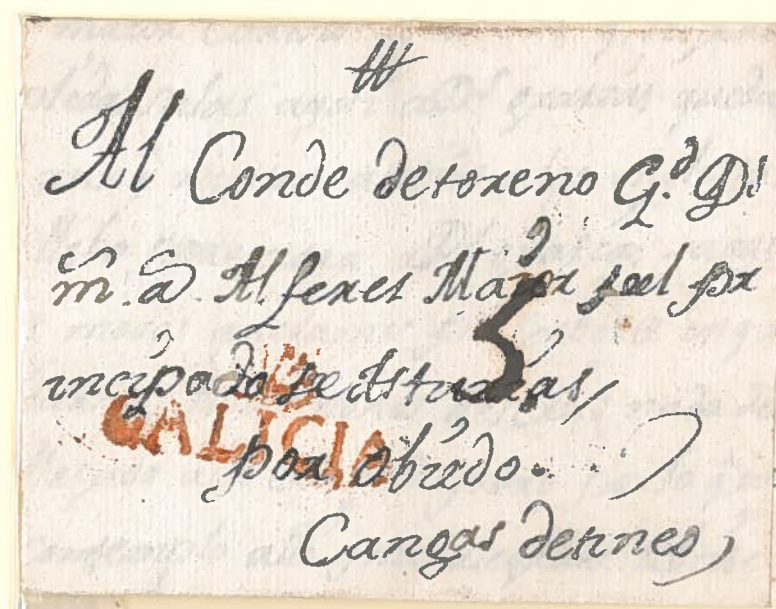 Al Conde detoreno G.d D.s
m. a. Alferes Maior del pr
incipado de Asturias
5
DE
GALICIA
por obiedo
Cangas detineo